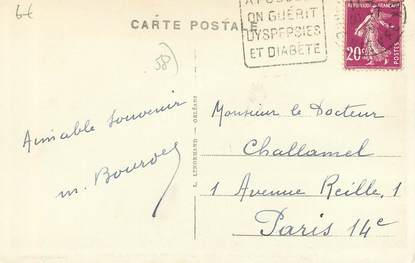 6€
CARTE POSTALE
ON GUÉRIT
DYSPEPSIES
ET DIABÈTE
RÉPUBLIQUE FRANÇAISE
20c
POSTES
58)
Aimable souvenir
L. LENORMAND - ORLÉANS
Monsieur le Docteur
Challamel
1 Avenue Reille, 1
Paris 14e